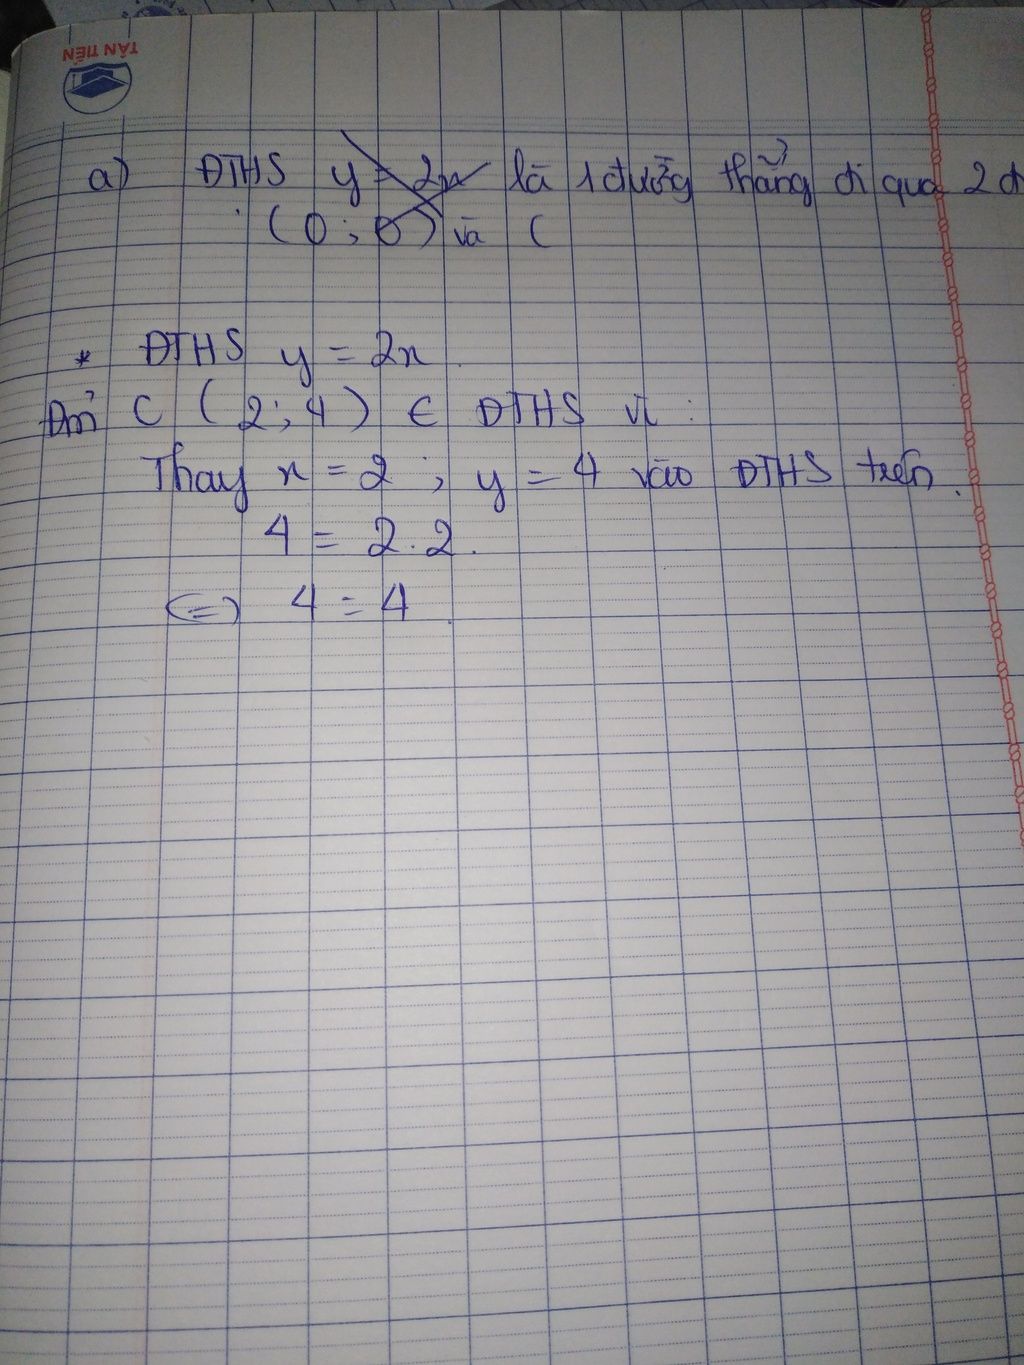 TÂN TIẾN
a) ĐTHS y = 2x là 1 đường thẳng đi qua 2 đ
(0 ; 0) và (
* ĐTHS y = 2x
Đm C ( 2 ; 4 ) ∈ ĐTHS vì :
Thay x = 2 ; y = 4 vào ĐTHS trên.
4 = 2.2.
<=> 4 = 4